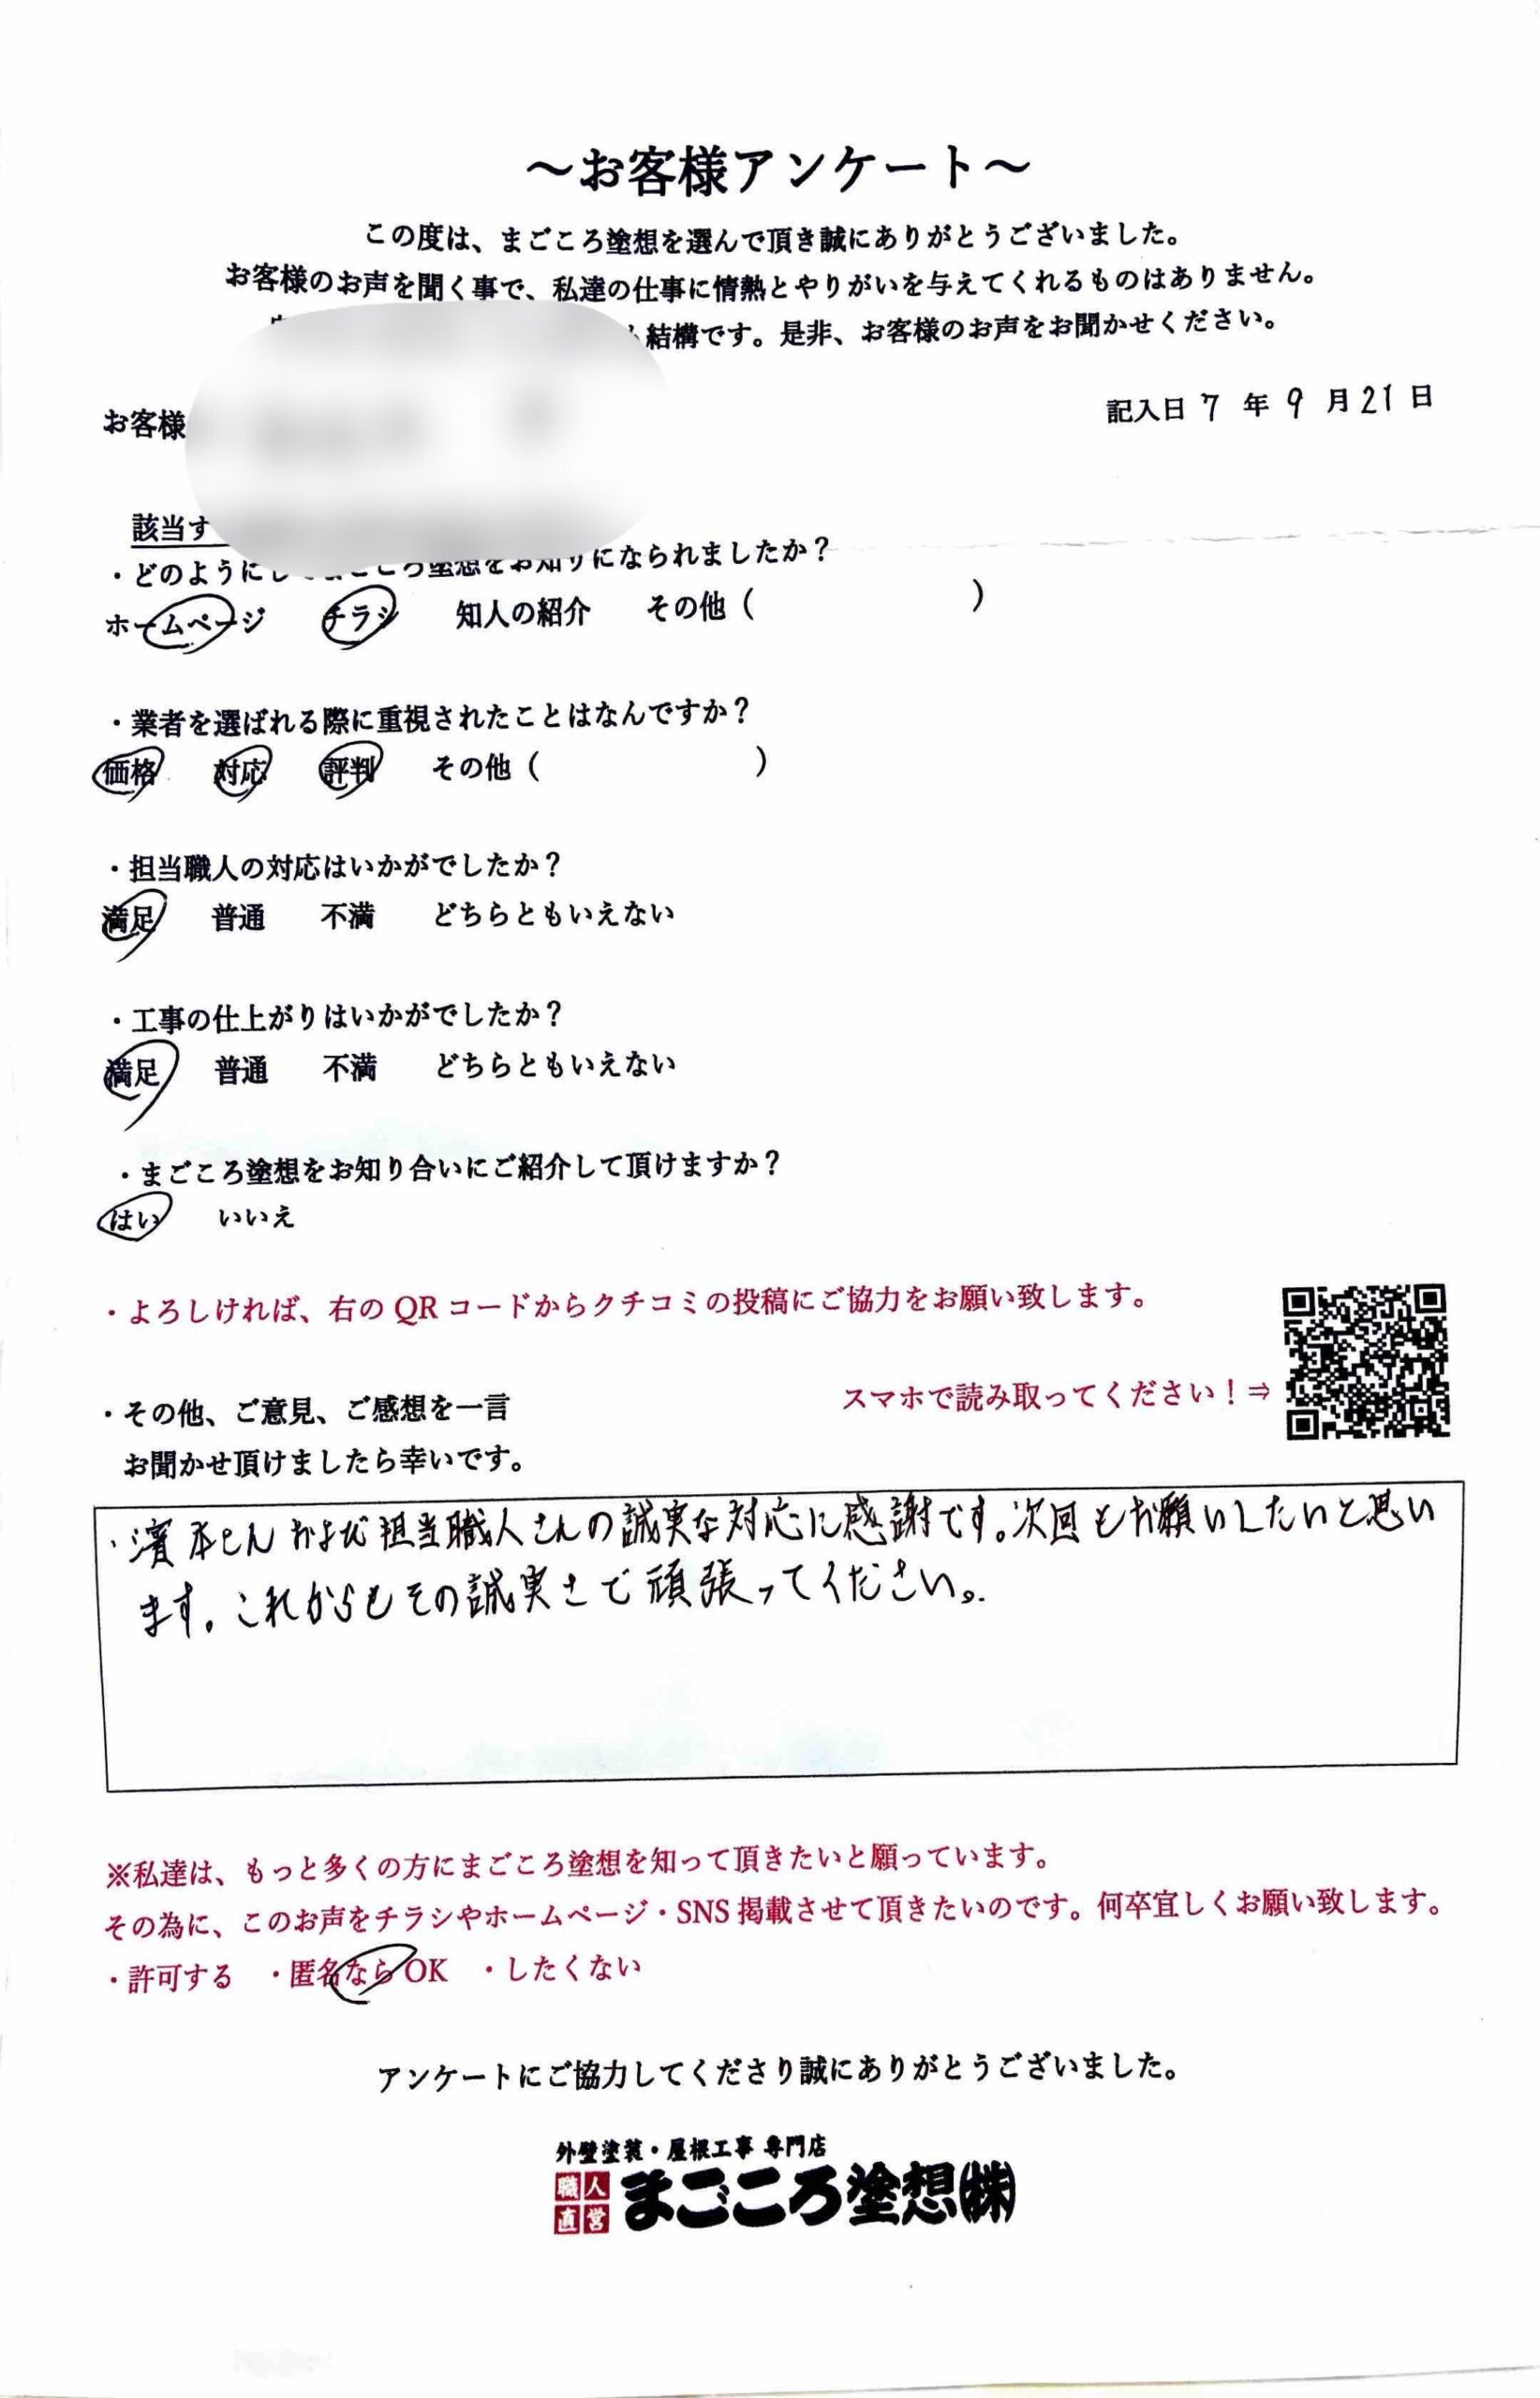 ～お客様アンケート～
この度は、まごころ塗想を選んで頂き誠にありがとうございました。
お客様のお声を聞く事で、私達の仕事に情熱とやりがいを与えてくれるものはありません。
結構です。是非、お客様のお声をお聞かせください。
お客様
記入日 7 年 9 月 21 日
該当す
・どのようにしてまごころ塗想をお知りになられましたか？
ホームページ チラシ 知人の紹介 その他（ ）
・業者を選ばれる際に重視されたことはなんですか？
価格 対応 評判 その他（ ）
・担当職人の対応はいかがでしたか？
満足 普通 不満 どちらともいえない
・工事の仕上がりはいかがでしたか？
満足 普通 不満 どちらともいえない
・まごころ塗想をお知り合いにご紹介して頂けますか？
はい いいえ
・よろしければ、右の QR コードからクチコミの投稿にご協力をお願い致します。
スマホで読み取ってください！⇒
・その他、ご意見、ご感想を一言
お聞かせ頂けましたら幸いです。
・濱本さんおよび担当職人さんの誠実な対応に感謝です。次回もお願いしたいと思い
ます。これからもその誠実さで頑張ってください。
※私達は、もっと多くの方にまごころ塗想を知って頂きたいと願っています。
その為に、このお声をチラシやホームページ・SNS 掲載させて頂きたいのです。何卒宜しくお願い致します。
・許可する ・匿名なら OK ・したくない
アンケートにご協力してくださり誠にありがとうございました。
外壁塗装・屋根工事 専門店
職人直営 まごころ塗想㈱